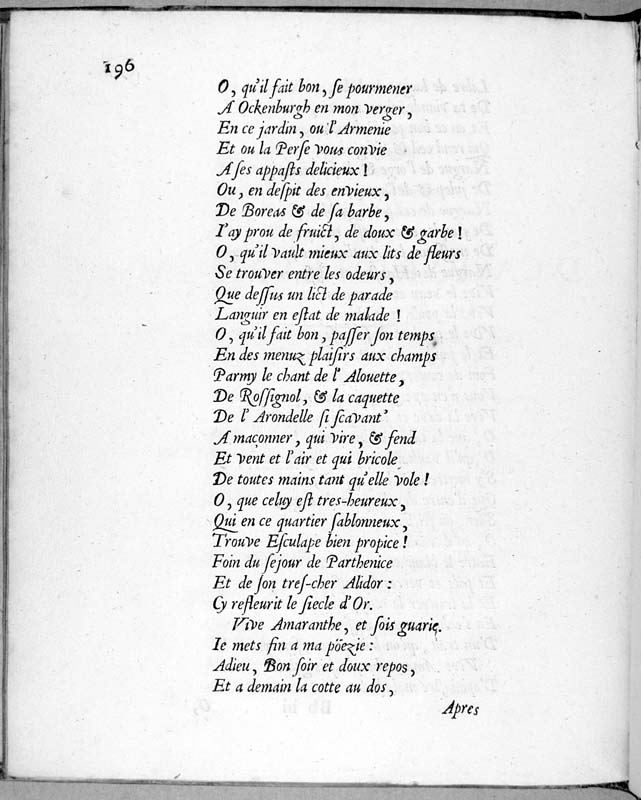 196
O, qu'il fait bon, ſe pourmener
A Ockenburgh en mon verger,
En ce jardin, ou l'Armenie
Et ou la Perſe vous convie
A ſes appaſts delicieux !
Ou, en deſpit des envieux,
De Boreas & de ſa barbe,
I'ay prou de fruict, de doux & garbe !
O, qu'il vault mieux aux lits de fleurs
Se trouver entre les odeurs,
Que deſſus un lict de parade
Languir en eſtat de malade !
O, qu'il fait bon, paſſer ſon temps
En des menuz plaiſirs aux champs
Parmy le chant de l' Alouette,
De Roſſignol, & la caquette
De l' Arondelle ſi ſcavant'
A maçonner, qui vire, & fend
Et vent et l'air et qui bricole
De toutes mains tant qu'elle vole !
O, que celuy eſt tres-heureux,
Qui en ce quartier ſablonneux,
Trouve Eſculape bien propice !
Foin du ſejour de Parthenice
Et de ſon treſ-cher Alidor :
Cy refleurit le ſiecle d'Or.
Vive Amaranthe, et ſois guarie.
Ie mets fin a ma pöezie :
Adieu, Bon ſoir et doux repos,
Et a demain la cotte au dos,
Apres